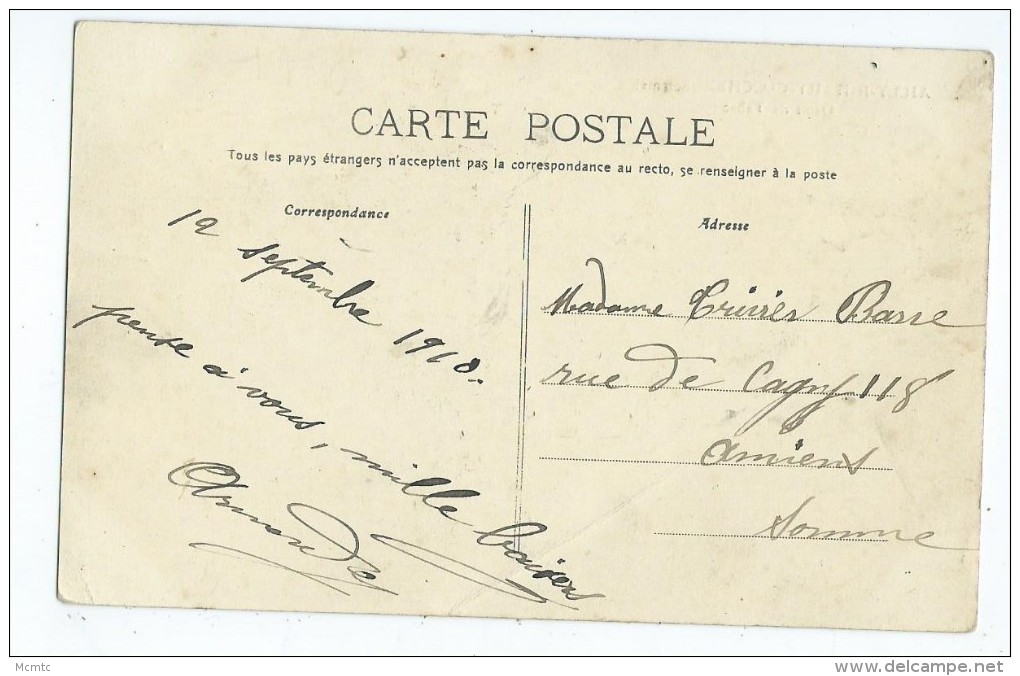 CARTE POSTALE
Tous les pays étrangers n'acceptent pas la correspondance au recto, se renseigner à la poste
Correspondance
12 septembre 1910.
pense à vous, mille baisers
Armande
Adresse
Madame Barre
rue de Cagny 118
Amiens
Somme
Mcmtc
delcampe.net